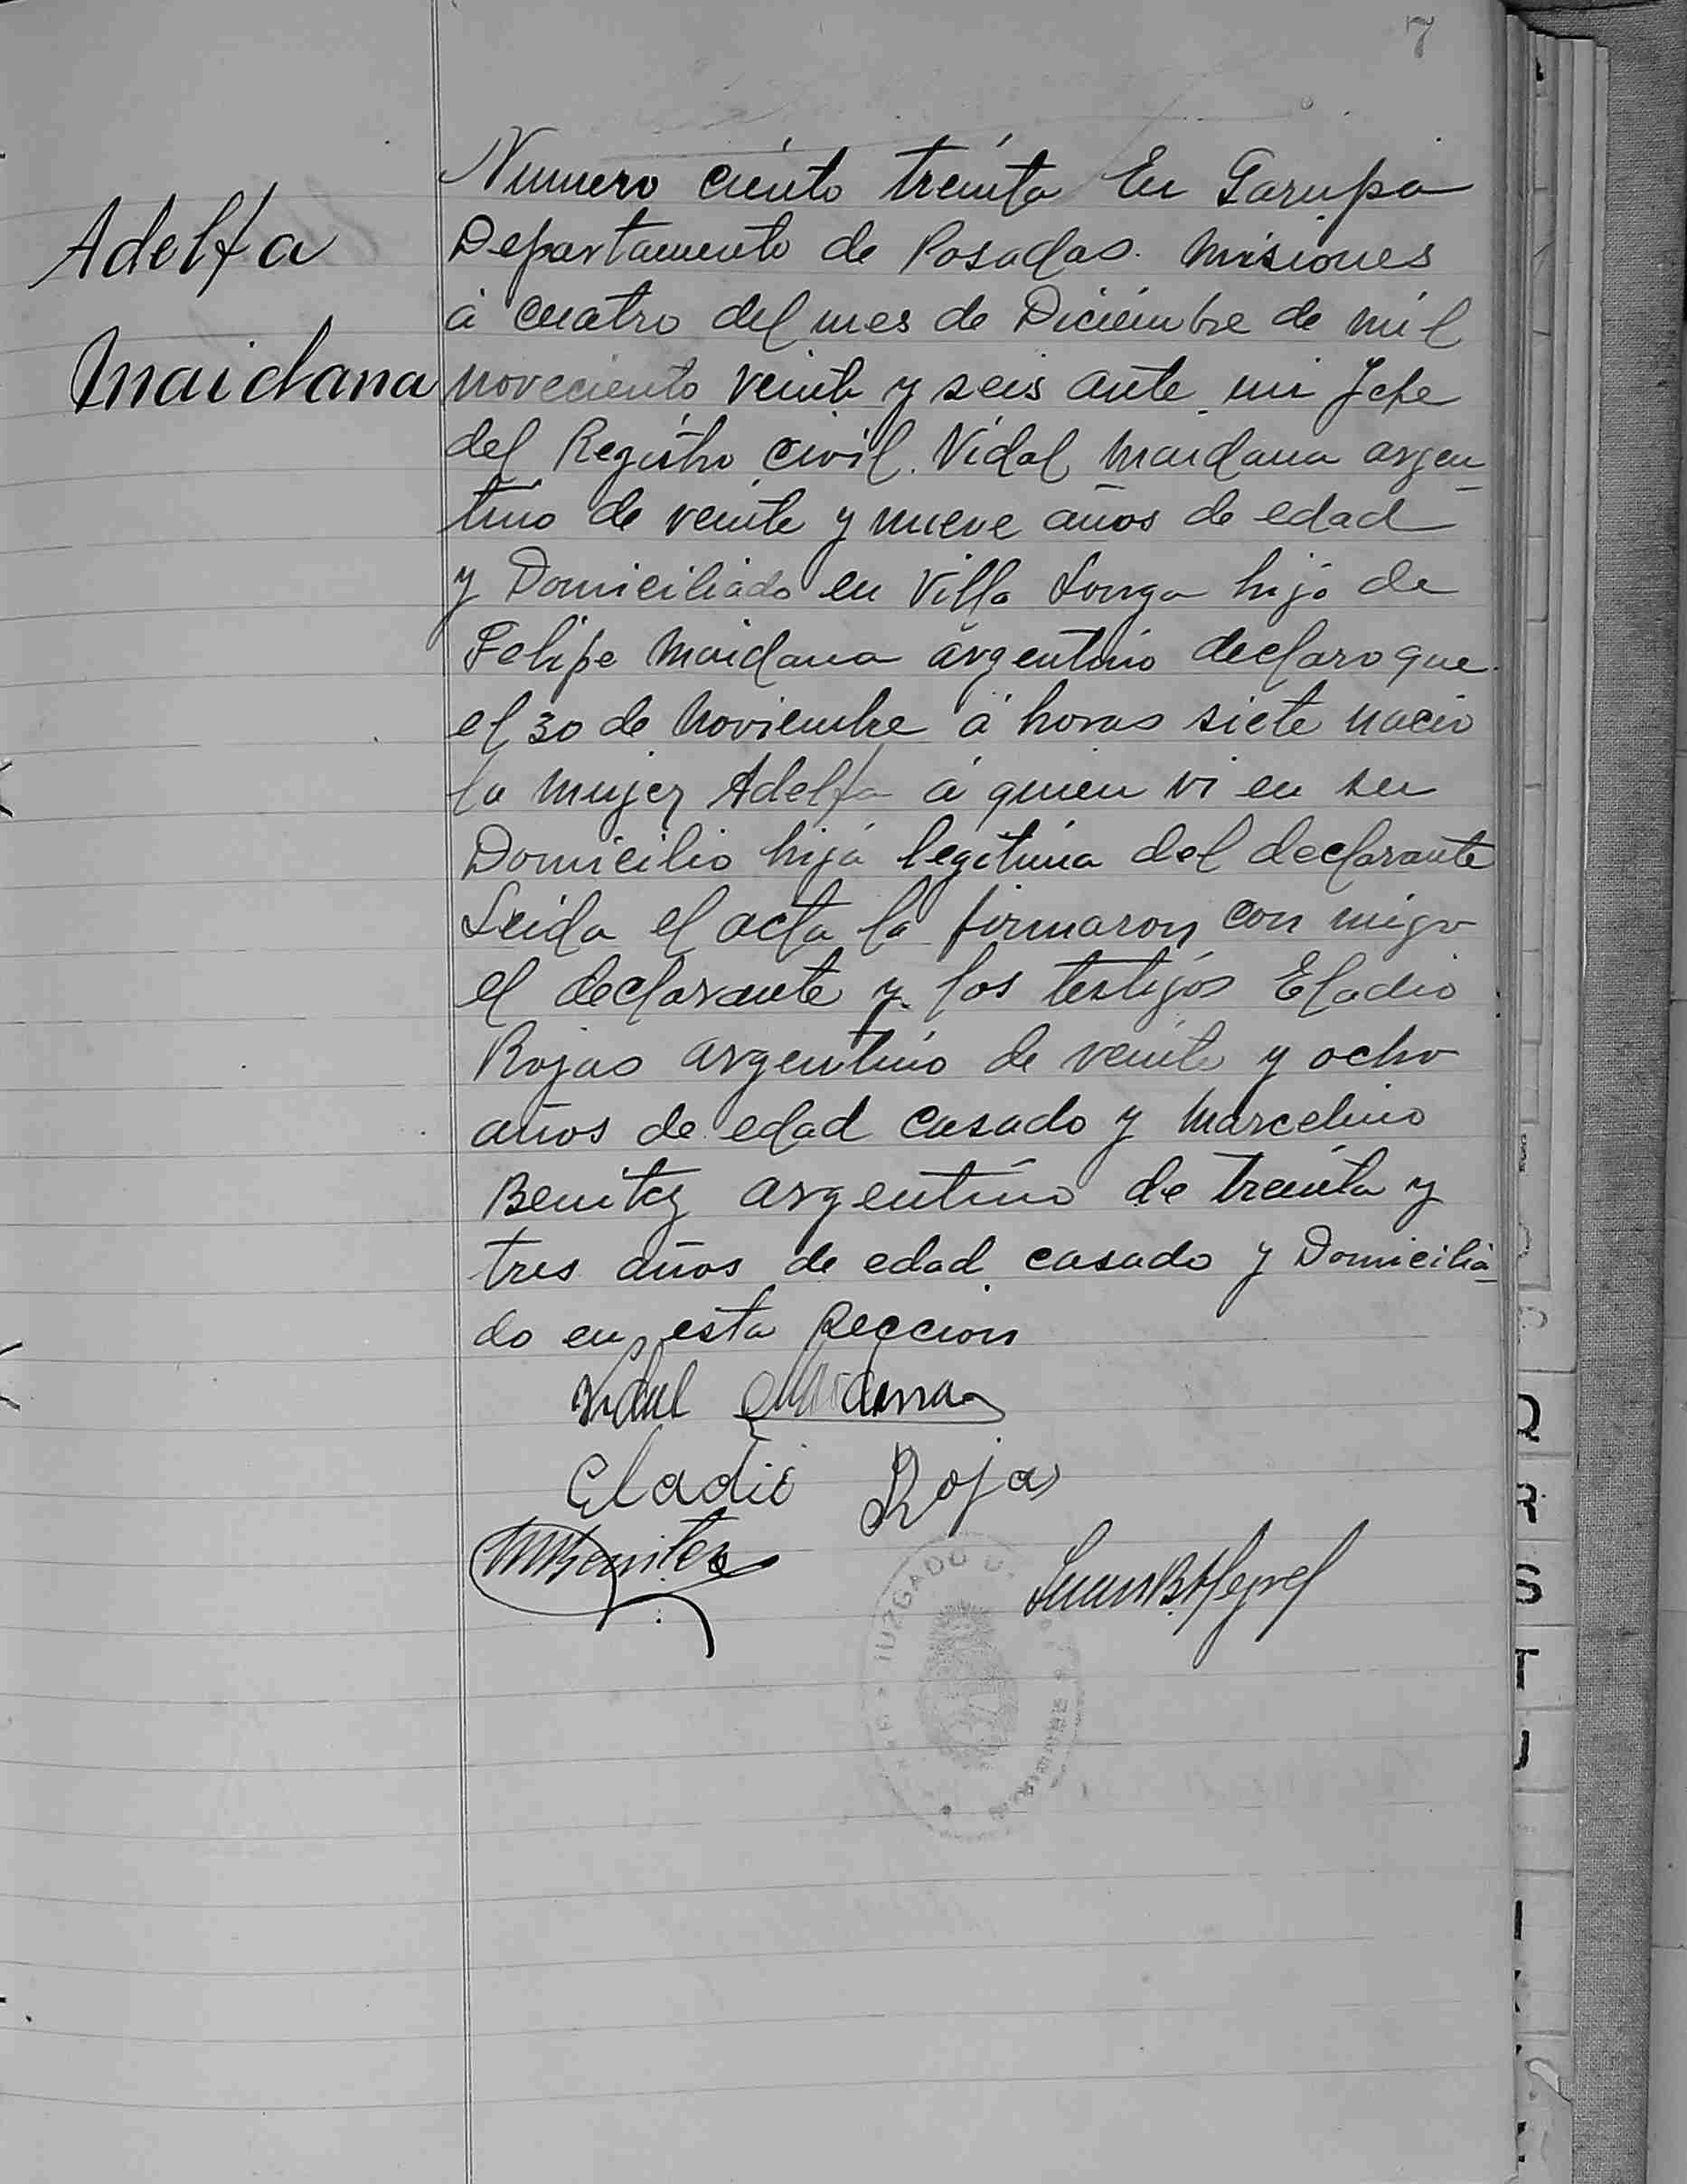 7
Adelfa
Maidana
Numero ciento treinta En Garupa
Departamento de Posadas. Misiones
á cuatro del mes de Diciembre de mil
noveciento veinte y seis ante mi Jefe
del Registro civil. Vidal Maidana argen
tino de veinte y nueve años de edad
y Domiciliado en Villa Longa hijo de
Felipe Maidana argentino declaro que
el 30 de Noviembre á horas siete nacio
la mujer Adelfa á quien vi en su
Domicilio hija legitima del declarante
Leida el acta la firmaron con migo
el declarante y los testigos Eladio
Rojas argentino de veinte y ocho
años de edad casado y Marcelino
Benitez argentino de treinta y
tres años de edad casado y Domicilia
do en esta Seccion
Vidal Maidana
Eladio Rojas
MBenitez
JUZGADO D
Q
R
S
T